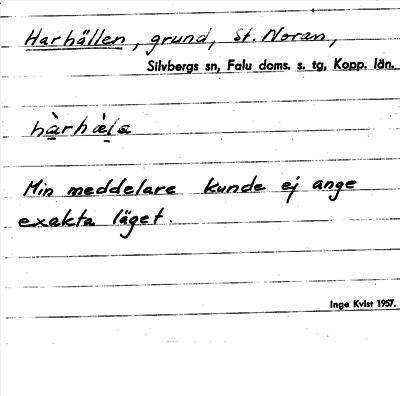 Harhällen, grund, St. Noran,
Silvbergs sn, Falu doms. s. tg, Kopp. län.
hàrhæ̀la
Min meddelare kunde ej ange
exakta läget.
Inge Kvist 1957.